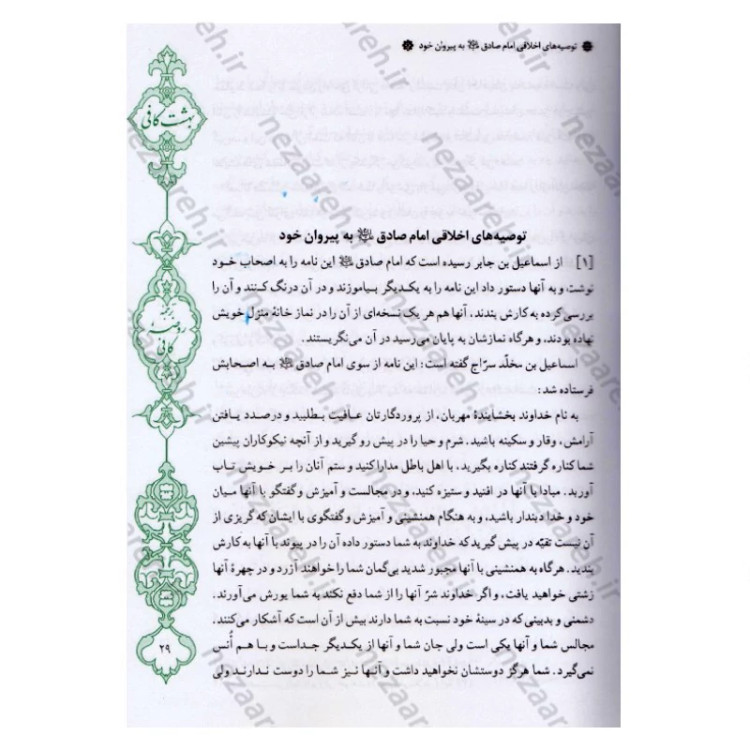 توصیه‌های اخلاقی امام صادق ﷺ به پیروان خود
بهشت کافی
ترجمه
روضه
کافی
توصیه‌های اخلاقی امام صادق به پیروان خود
[۱] از اسماعیل بن جابر رسیده است که امام صادق این نامه را به اصحاب خود
نوشت و به آنها دستور داد این نامه را به یکدیگر بیاموزند و در آن درنگ کنند و آن را
بررسی کرده به کارش بندند. آنها هم هر یک نسخه‌ای از آن را در نماز خانهٔ منزل خویش
نهاده بودند، و هرگاه نمازشان به پایان می‌رسید در آن می‌نگریستند.
اسماعیل بن مخلّد سرّاج گفته است: این نامه از سوی امام صادق به اصحابش
فرستاده شد:
به نام خداوند بخشایندهٔ مهربان، از پروردگارتان عافیت بطلبید و درصدد یافتن
آرامش، وقار و سکینه باشید. شرم و حیا را در پیش رو گیرید و از آنچه نیکوکاران پیشین
شما کناره گرفتند کناره بگیرید، با اهل باطل مدارا کنید و ستم آنان را بر خویش تاب
آورید. مبادا با آنها در افتید و ستیزه کنید، و در مجالست و آمیزش و گفتگو با آنها میان
خود و خدا دیندار باشید، و به هنگام همنشینی و آمیزش و گفتگوی با ایشان که گریزی از
آن نیست تقیّه در پیش گیرید که خداوند به شما دستور داده آن را در پیوند با آنها به کارش
بندید. هرگاه به همنشینی با آنها مجبور شدید بی‌گمان شما را خواهند آزرد و در چهرهٔ آنها
زشتی خواهید یافت، و اگر خداوند شرّ آنها را از شما دفع نکند به شما یورش می‌آورند.
دشمنی و بدبینی که در سینهٔ خود نسبت به شما دارند بیش از آن است که آشکار می‌کنند.
مجالس شما و آنها یکی است ولی جان شما و آنها از یکدیگر جداست و با هم اُنس
نمی‌گیرد. شما هرگز دوستشان نخواهید داشت و آنها نیز شما را دوست ندارند ولی
۲۹
nezaareh.ir